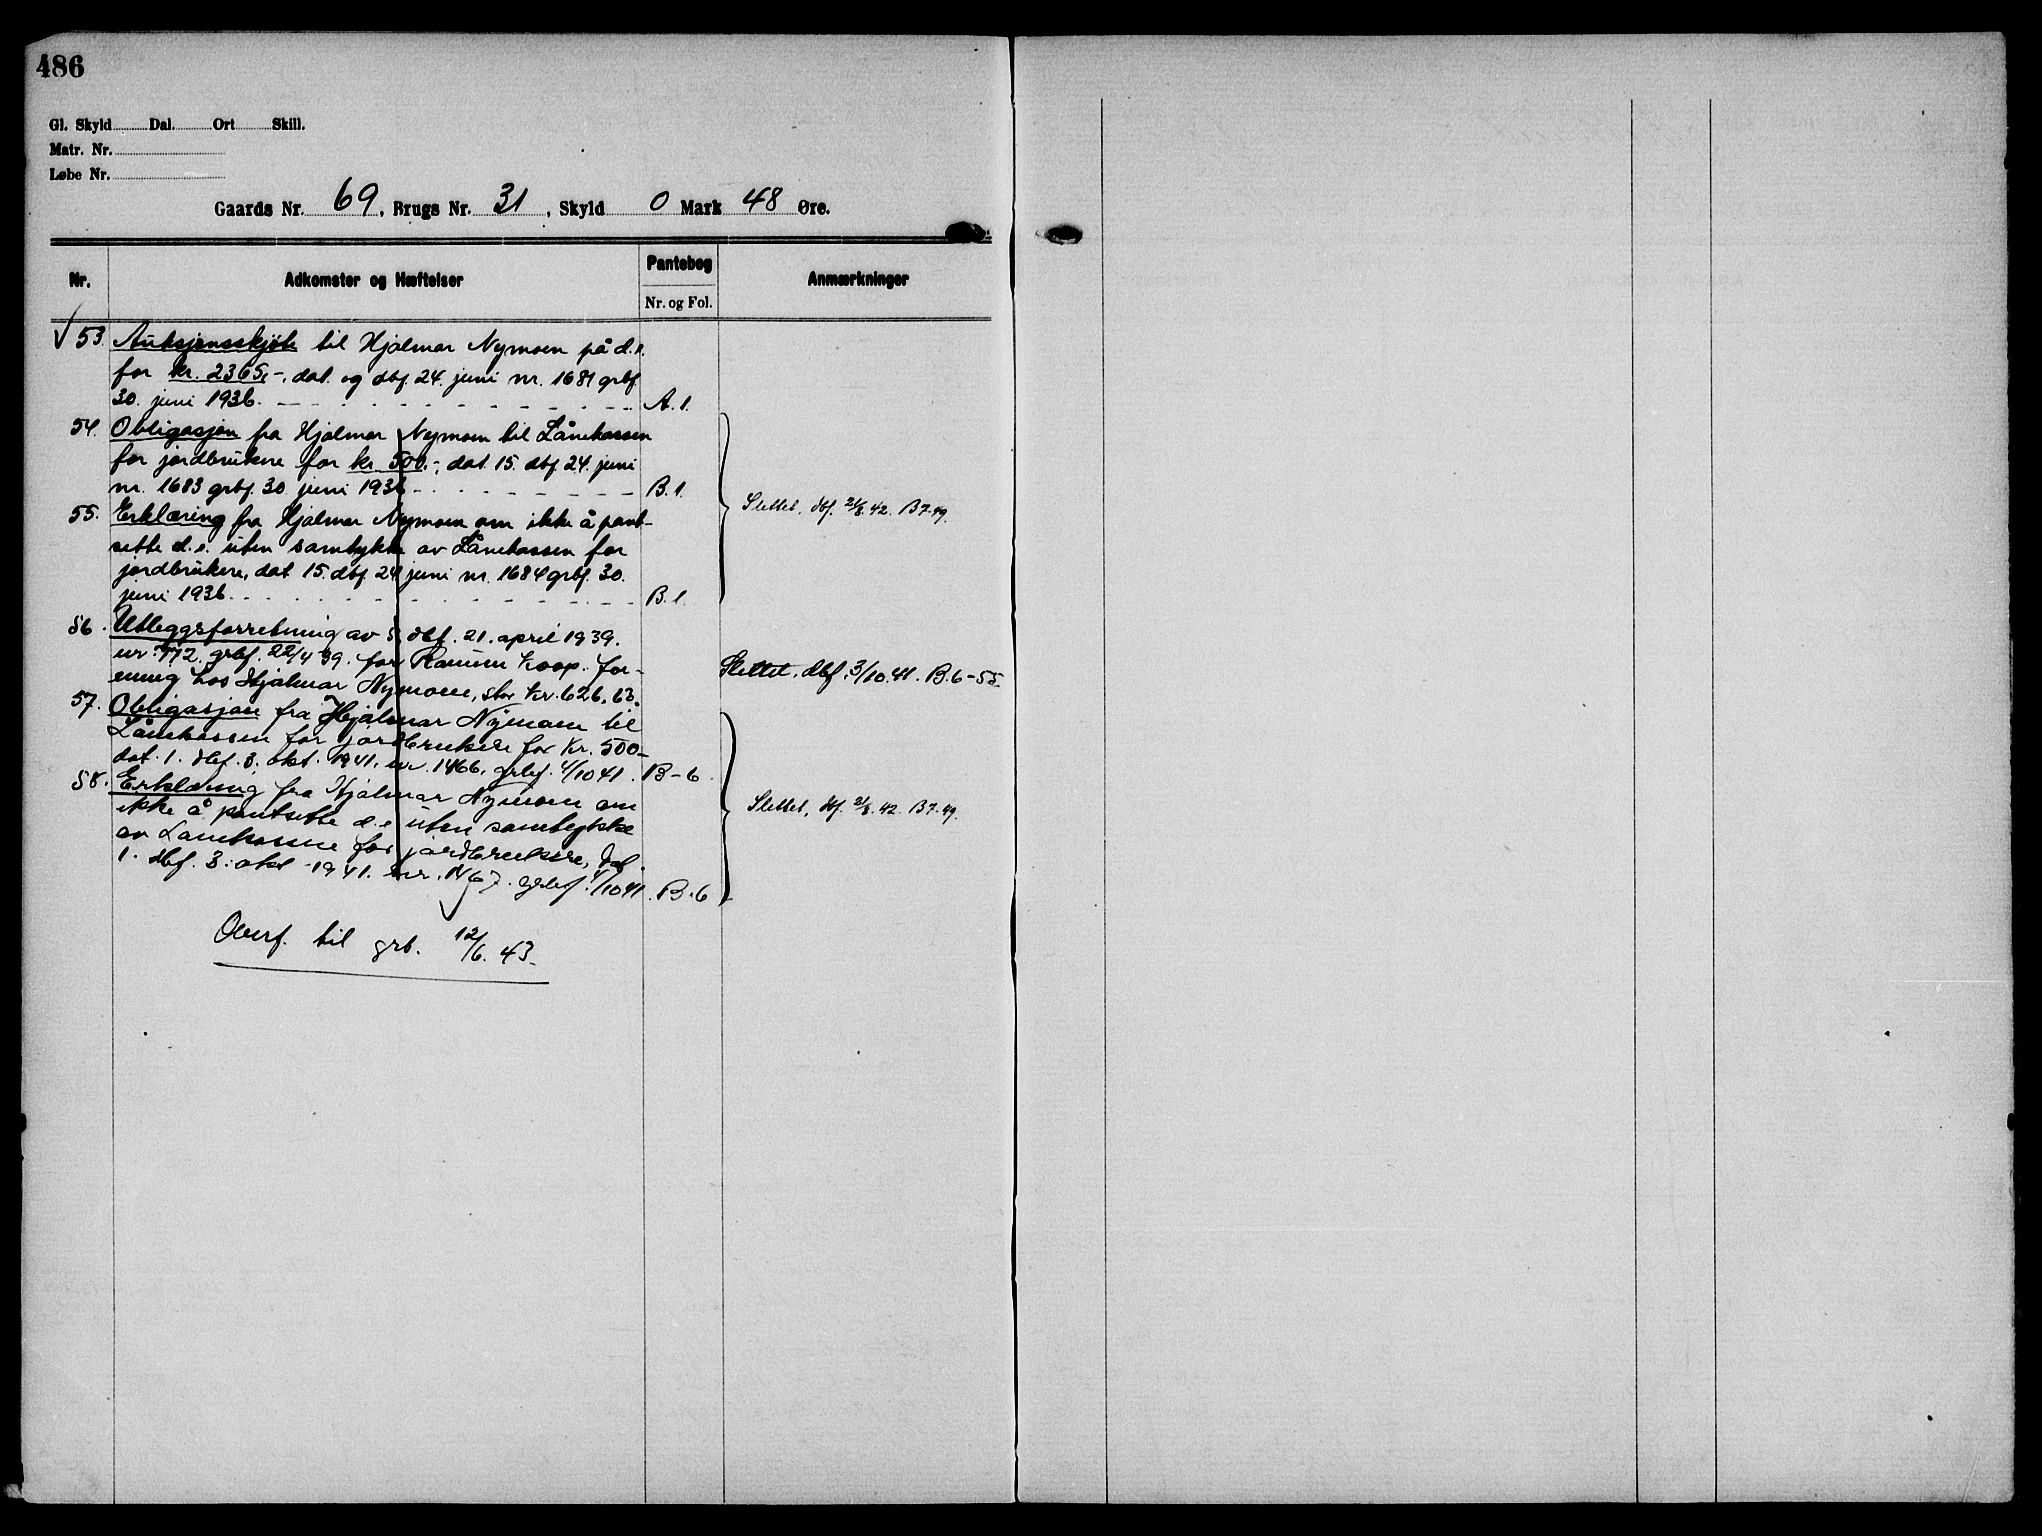 486
Gl. Skyld Dal. Ort Skill.
Matr. Nr.
Løbe Nr.
Gaards Nr. 69, Brugs Nr. 31, Skyld 0 Mark 48 Øre.
Nr. Adkomster og Hæftelser Pantebog Anmærkninger
Nr. og Fol.
√ 53. Auksjonsskjöte til Hjalmar Nymoen på d.e.
for kr. 2365,-, dat. og dbf. 24. juni nr. 1681 grbf.
30. juni 1936. A.1.
54. Obligasjon fra Hjalmar Nymoen til Lånekassen
for jordbrukere for kr. 500.-, dat. 15. dbf. 24. juni
nr. 1683 grbf. 30 juni 1936 B.1.
55. Erklæring fra Hjalmar Nymoen om ikke å pant-
Slettet, dbf. 21/8.42. B7.49.
sette d.e. uten samtykke av Lånekassen for
jordbrukere, dat 15. dbf 24 juni nr. 1684 grbf. 30.
juni 1936. B.1.
56. Utleggsforretning av 5. dbf. 21. april 1939.
nr. 772. grbf. 22/4 39. for Ranum Koop. for-
ening hos Hjalmar Nymoen, stor kr. 626,63.
Slettet. dbf. 3/10.41. B.6-55
57. Obligasjon fra Hjalmar Nymoen til
Lånekassen for jordbrukere for kr. 500-
dat. 1. dbf. 3. okt. 1941. nr. 1466. grbf. 4/10 41. B-6
58. Erklæring fra Hjalmar Nymoen om
ikke å pantsette d.e uten samtykke
Slettet, dbf. 21/8.42. B7.49.
av Lånekassen for jordbrukere, dat.
1. dbf. 3. okt. 1941. nr. 1467. grbf. 4/10 41. B.6
Overf. til grb. 12/6.43.